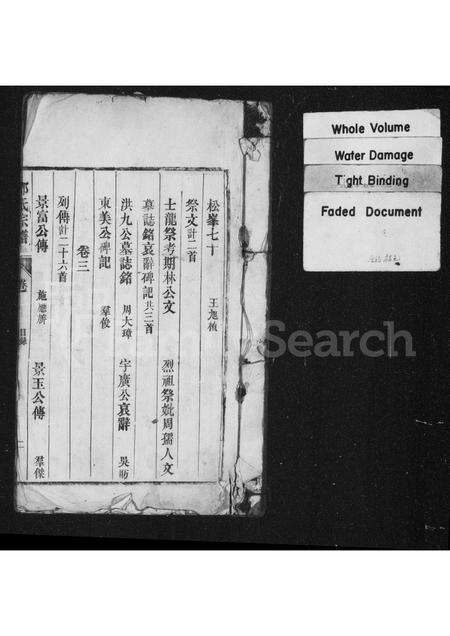 松峯七十 王旭楨
祭文計二首
士龍祭考期林公文 烈祖祭妣周孺人文
墓誌銘哀辭碑記共三首
洪九公墓誌銘 周大璋 宇廣公哀辭 吳昉
東美公碑記 羣俊
卷三
列傳計二十六首
景富公傳 施應唐 景玉公傳 羣傑
氏宗譜 卷 目錄
Whole Volume
Water Damage
Tight Binding
Faded Document
Search